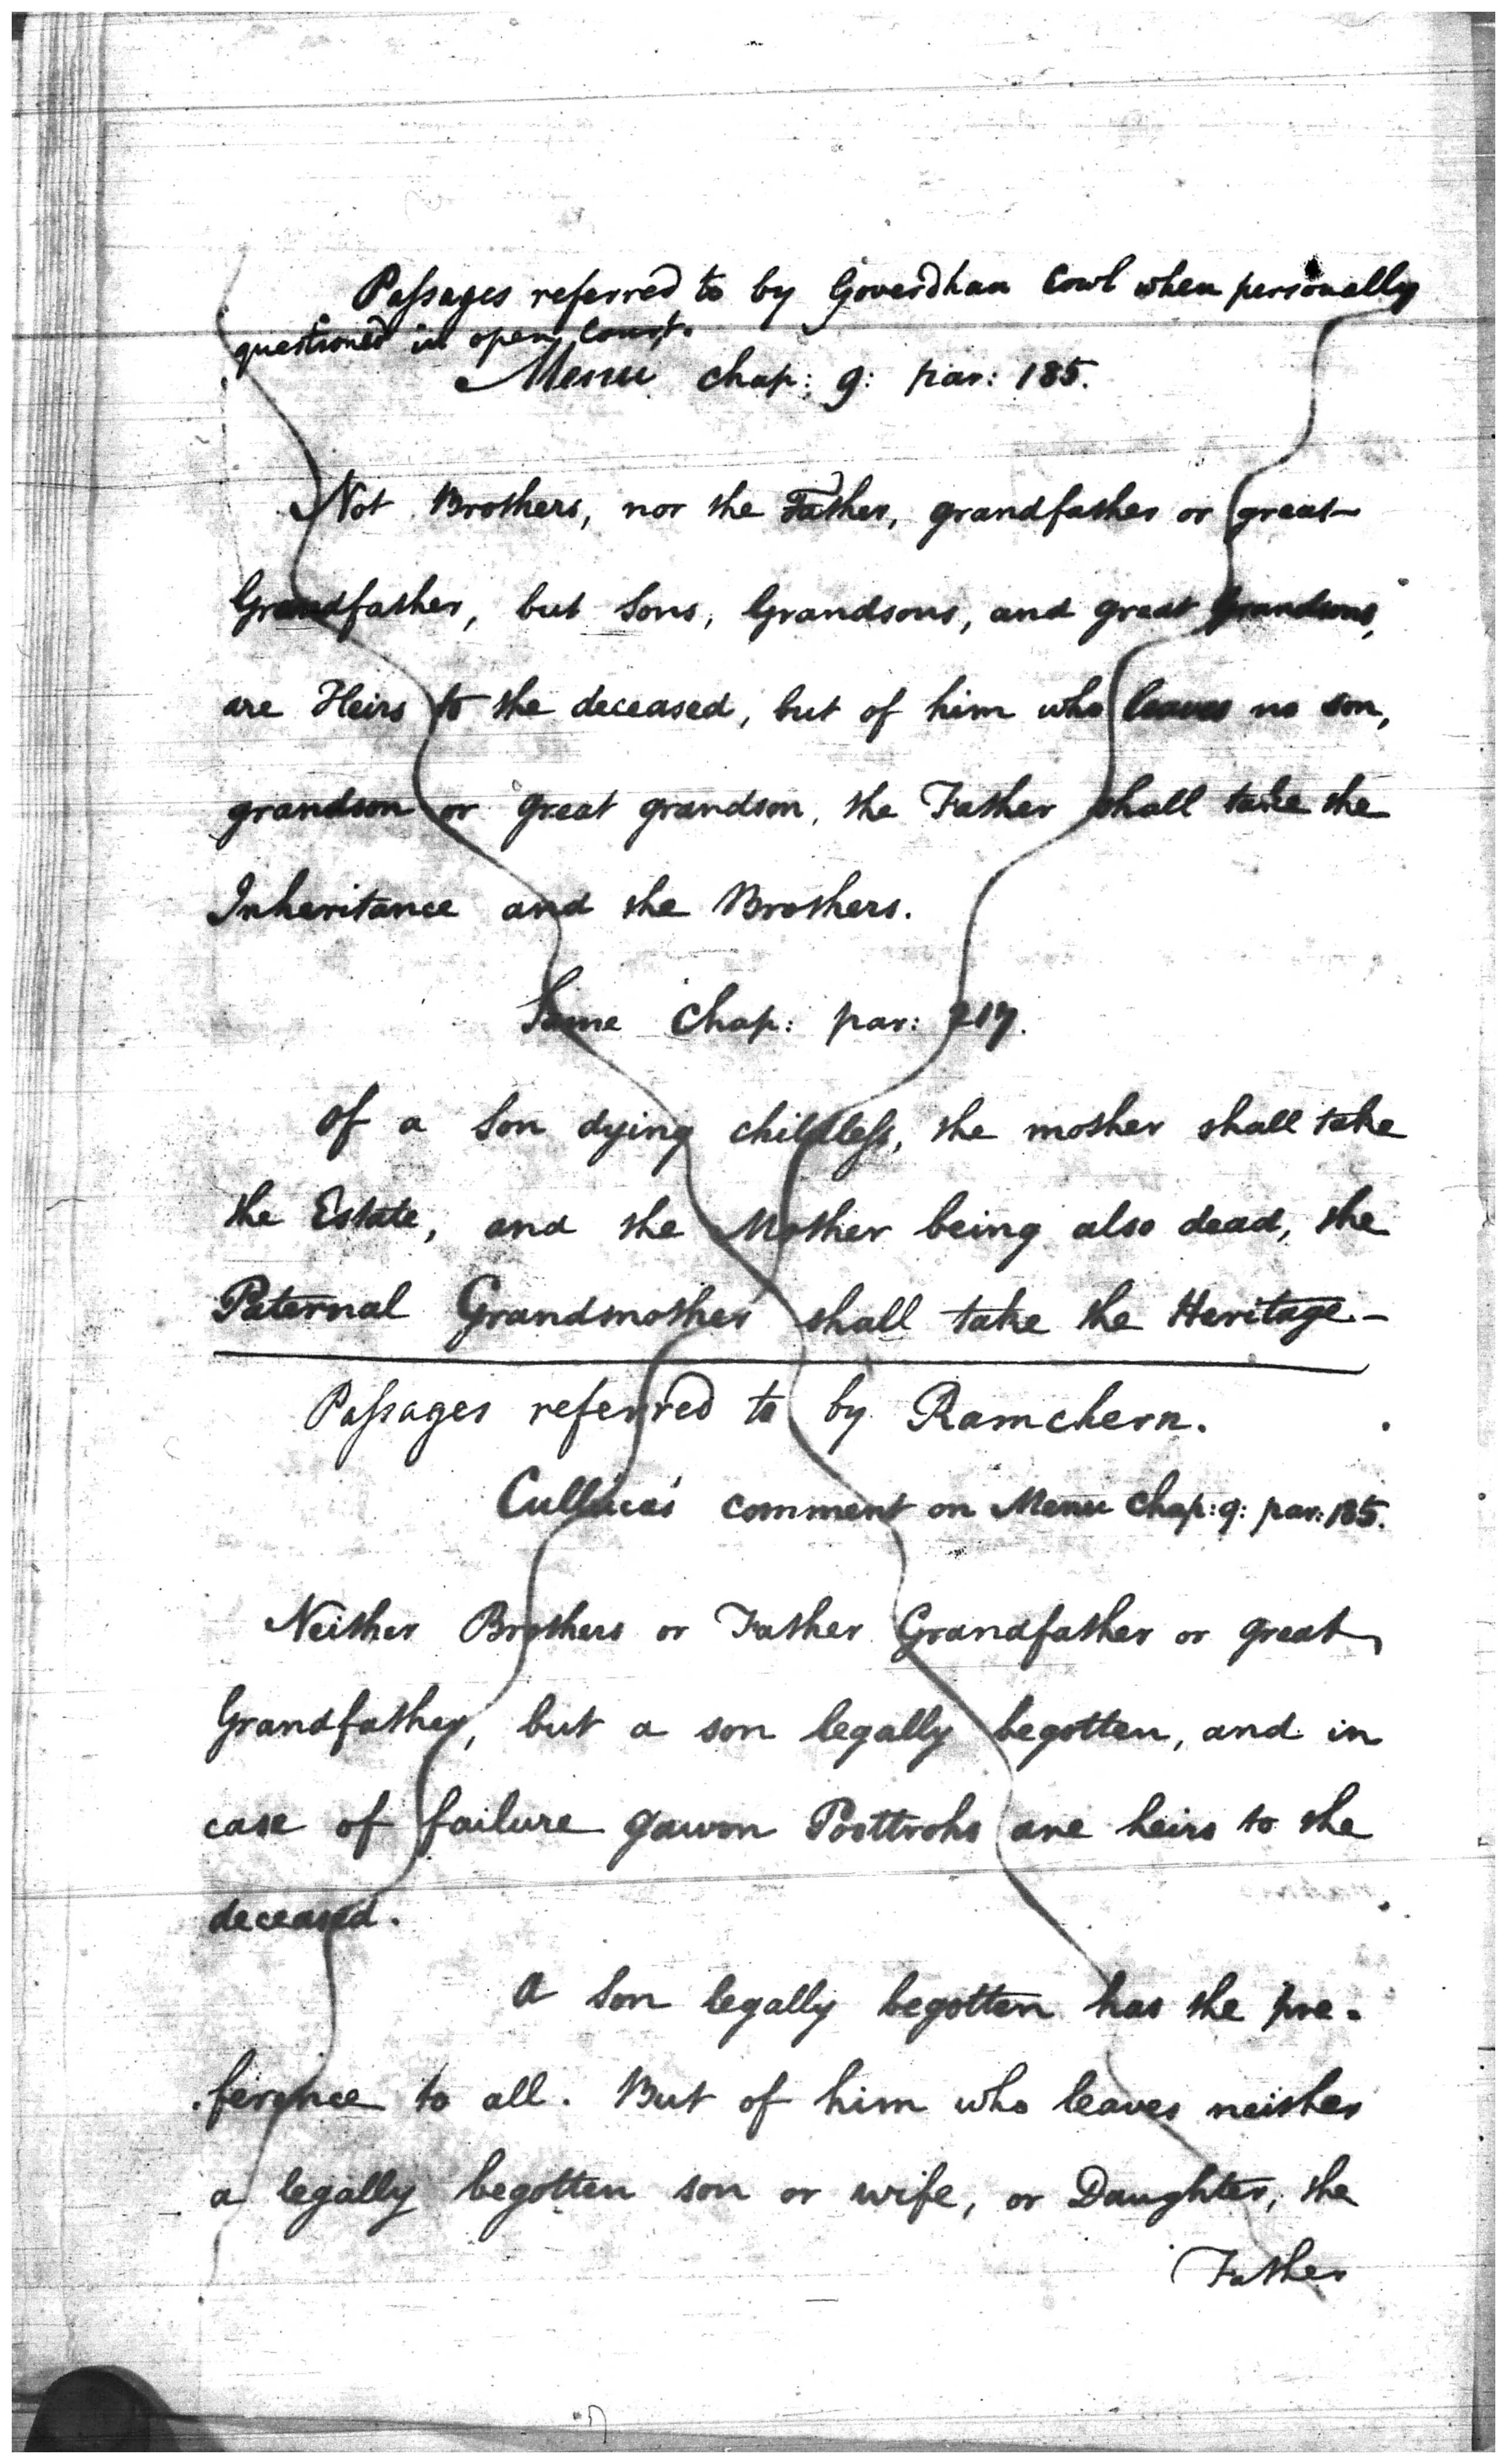 Passages referred to by Goverdhan Cowl when personally
questioned in open Court.
Menu chap: 9: par: 185.
Not Brothers, nor the Father, grandfather or great
Grandfather, but Sons, Grandsons, and great Grandsons,
are Heirs to the deceased, but of him who leaves no son,
grandson or great grandson, the Father shall take the
Inheritance and the Brothers.
Same Chap: par: 217.
Of a Son dying childless, the mother shall take
the Estate, and the Mother being also dead, the
Paternal Grandmother shall take the Heritage.-
Passages referred to by Ramchern.
Cullucas comment on Menu Chap: 9: par: 185.
Neither Brothers or Father Grandfather or great
Grandfather, but a son legally begotten, and in
case of failure gawon Posttrohs are heirs to the
deceased.
A Son legally begotten has the pre-
ference to all. But of him who leaves neither
a legally begotten son or wife, or Daughter, the
Father